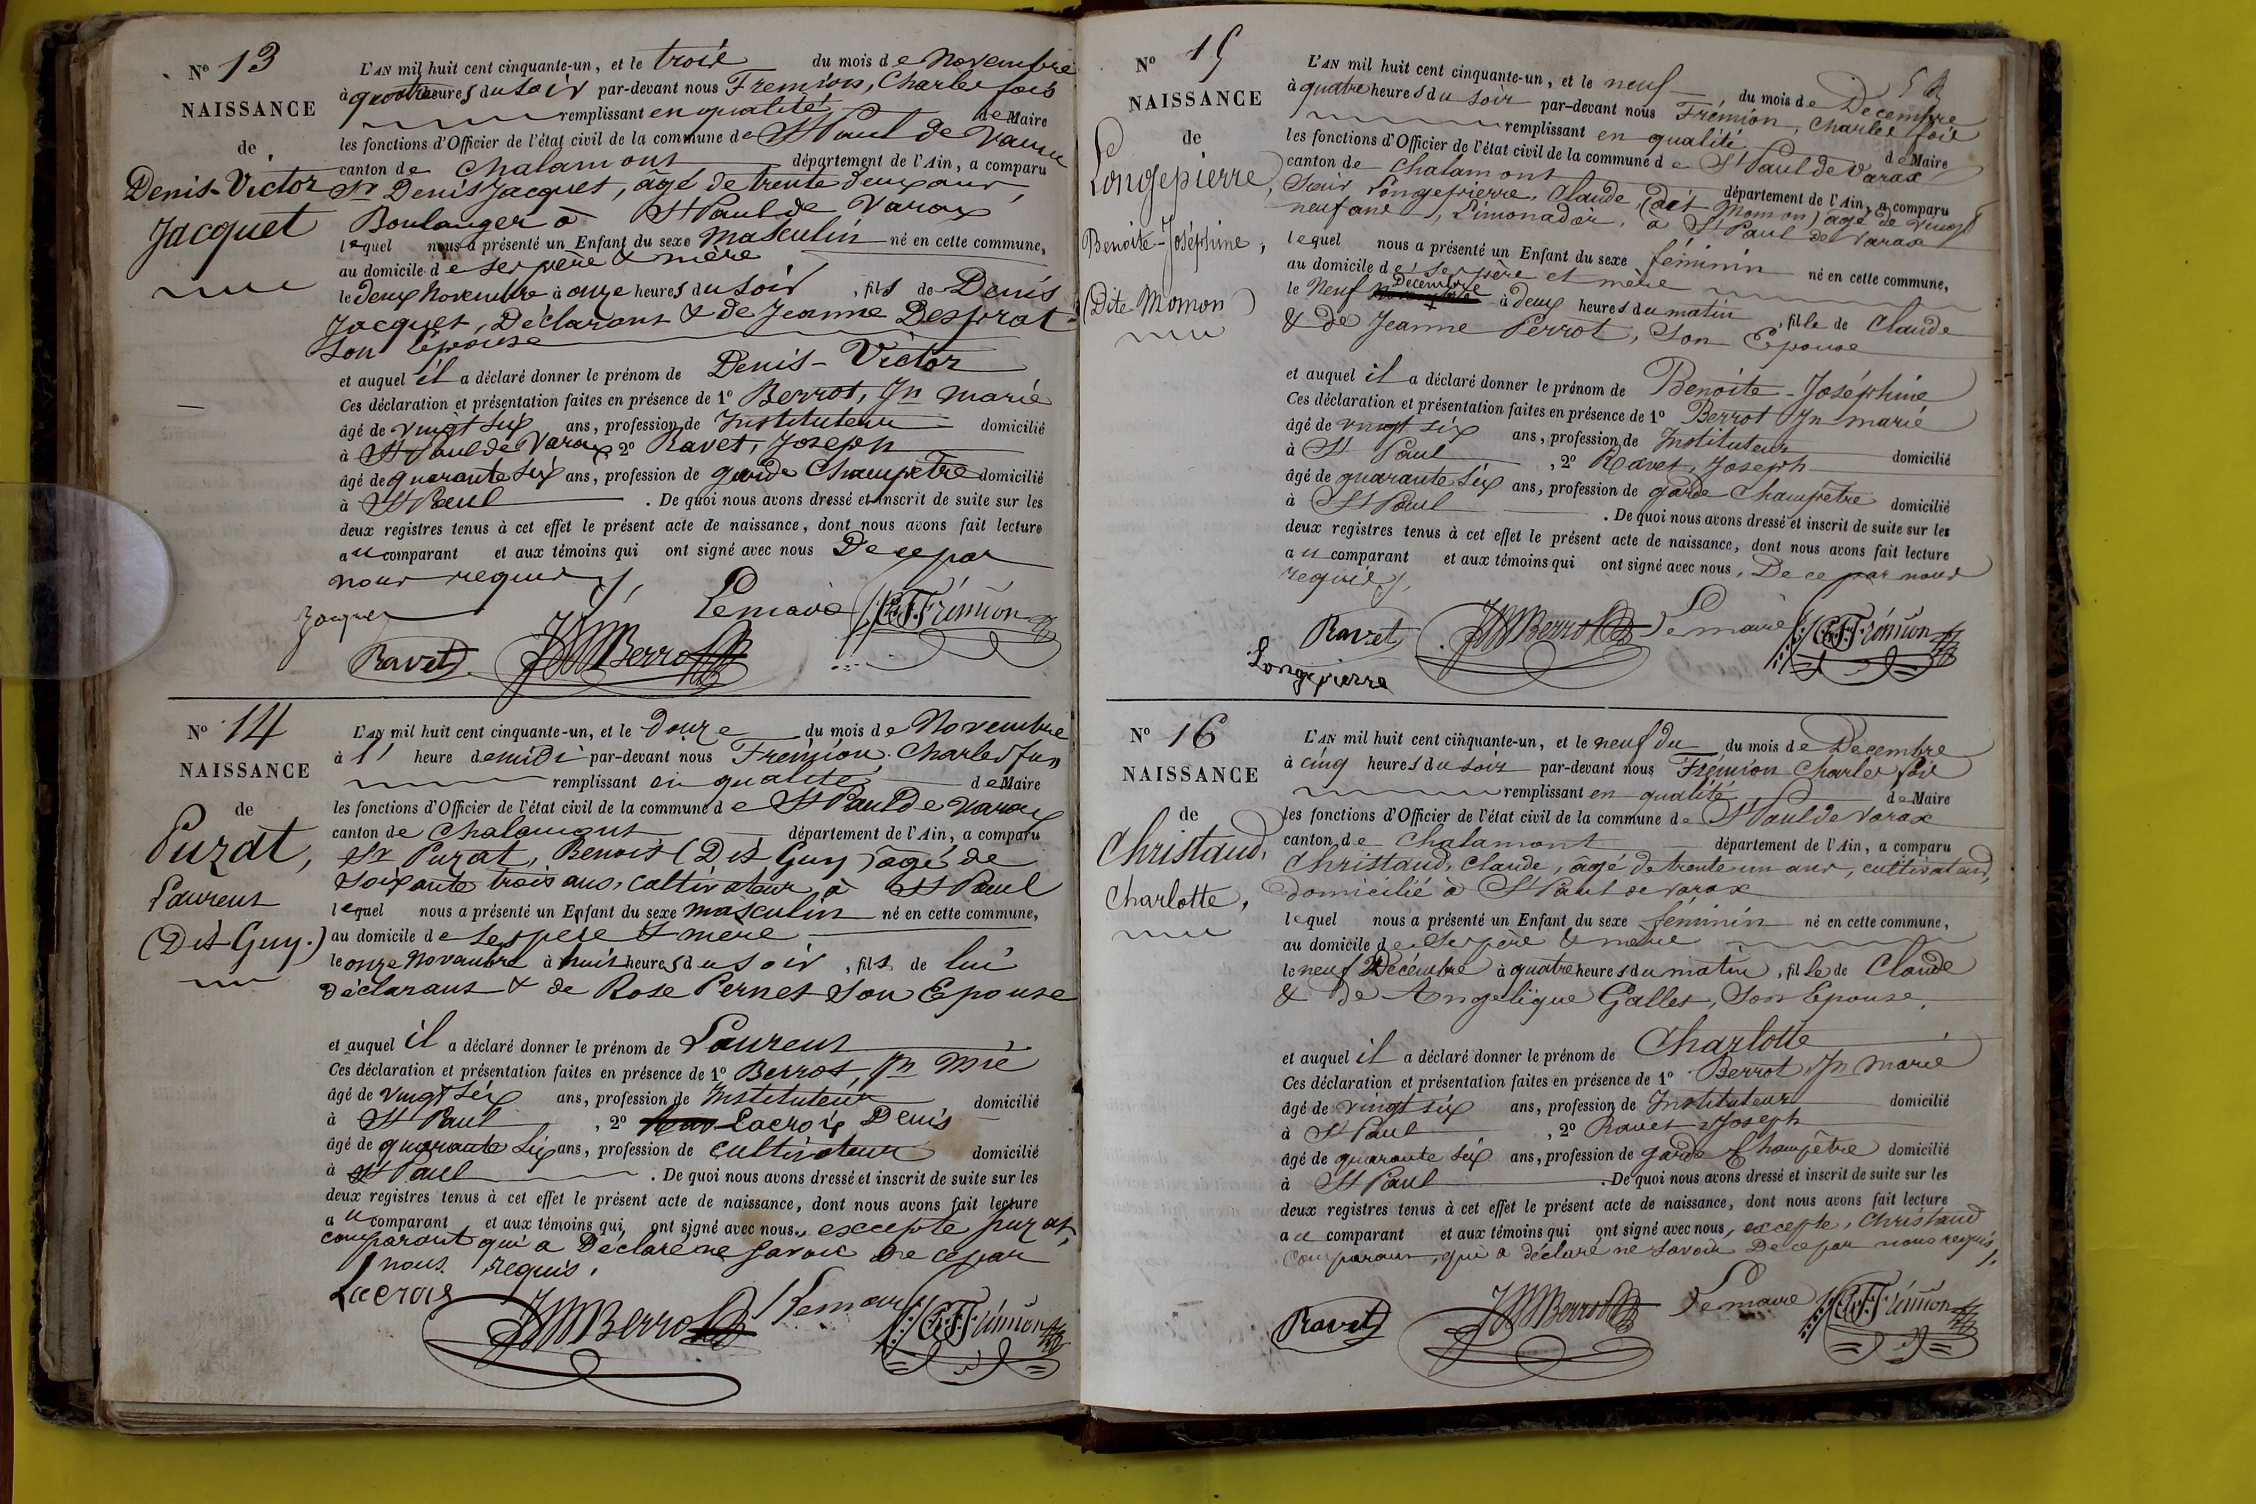 N° 13
NAISSANCE
de
Denis-Victor
Jacquet
L'AN mil huit cent cinquante-un, et le trois du mois de Novembre
à quatre heures du soir par-devant nous Fremion, Charles fois
remplissant en qualité de Maire
les fonctions d'Officier de l'état civil de la commune de St Paul de Varax
canton de Chalamont département de l'Ain, a comparu
Sr Denis Jacquet, âgé de trente deux ans,
Boulanger à St Paul de Varax
lequel nous a présenté un Enfant du sexe masculin né en cette commune,
au domicile de ses père & mère
le deux Novembre à onze heures du soir, fils de Denis
Jacquet, Déclarant & de Jeanne Desprat
son Epouse
et auquel il a déclaré donner le prénom de Denis-Victor
Ces déclaration et présentation faites en présence de 1° Berrot, Jn Marie
âgé de vingt six ans, profession de Instituteur domicilié
à St Paul de Varax 2° Ravet, Joseph
âgé de quarante six ans, profession de garde Champêtre domicilié
à St Paul. De quoi nous avons dressé et inscrit de suite sur les
deux registres tenus à cet effet le présent acte de naissance, dont nous avons fait lecture
au comparant et aux témoins qui ont signé avec nous De ce par
nous requis
Jacquet Le maire C.F. Frémion
Ravet JM Berrot
N° 14
NAISSANCE
de
Purat,
Laurent
(Dit Guy.)
L'AN mil huit cent cinquante-un, et le douze du mois de Novembre
à 1 heure demidi par-devant nous Fremion Charles
remplissant en qualité de Maire
les fonctions d'Officier de l'état civil de la commune de St Paul De Varax
canton de Chalamont département de l'Ain, a comparu
Sr Purat, Benoit (Dit Guy) âgé de
soixante trois ans, cultivateur à St Paul
lequel nous a présenté un Enfant du sexe masculin né en cette commune,
au domicile de ses pere & mere
le onze Novembre à huit heures du soir, fils de lui
déclarant & de Rose Pernet son Epouse
et auquel il a déclaré donner le prénom de Laurent
Ces déclaration et présentation faites en présence de 1° Berrot, Jn Mie
âgé de vingt six ans, profession de Instituteur domicilié
à St Paul, 2° Lacroix Denis
âgé de quarante six ans, profession de cultivateur domicilié
à St Paul. De quoi nous avons dressé et inscrit de suite sur les
deux registres tenus à cet effet le présent acte de naissance, dont nous avons fait lecture
au comparant et aux témoins qui ont signé avec nous excepte purat,
comparant qui a Déclaré ne savoir De ce par
nous requis.
Lacroix JM Berrot Le maire C.F. Frémion
N° 15
NAISSANCE
de
Longepierre,
Benoite-Joséphine,
(Dite Momon)
L'AN mil huit cent cinquante-un, et le neuf du mois de Decembre
à quatre heures du soir par-devant nous Frémion, Charles fois
remplissant en qualité de Maire
les fonctions d'Officier de l'état civil de la commune de St Paul de Varax
canton de Chalamont département de l'Ain, a comparu
Sieur Longepierre, Claude, (dit Momon) âgé de vingt
neuf ans, Limonadier, à St Paul de Varax
lequel nous a présenté un Enfant du sexe féminin né en cette commune,
au domicile de ses père et mère
le Neuf Décembre à deux heures du matin, fille de Claude
& de Jeanne Perrot, Son Epouse
et auquel il a déclaré donner le prénom de Benoite-Joséphine
Ces déclaration et présentation faites en présence de 1° Berrot Jn marie
âgé de vingt six ans, profession de Instituteur domicilié
à St Paul, 2° Ravet, Joseph
âgé de quarante six ans, profession de garde Champêtre domicilié
à St Paul. De quoi nous avons dressé et inscrit de suite sur les
deux registres tenus à cet effet le présent acte de naissance, dont nous avons fait lecture
au comparant et aux témoins qui ont signé avec nous, De ce par nous
requis
Ravet JM Berrot Le maire C.F. Frémion
Longepierre
N° 16
NAISSANCE
de
Christaud,
Charlotte,
L'AN mil huit cent cinquante-un, et le neuf du du mois de Decembre
à cinq heures du soir par-devant nous Frémion Charles fois
remplissant en qualité de Maire
les fonctions d'Officier de l'état civil de la commune de St Paul de Varax
canton de Chalamont département de l'Ain, a comparu
Christaud, Claude, âgé de trente un ans, cultivateur,
domicilié à St Paul de Varax
lequel nous a présenté un Enfant du sexe féminin né en cette commune,
au domicile de ses père & mère
le neuf Décembre à quatre heures du matin, fille de Claude
& de Angelique Gallet, Son Epouse,
et auquel il a déclaré donner le prénom de Charlotte
Ces déclaration et présentation faites en présence de 1° Berrot, Jn Marie
âgé de vingt six ans, profession de Instituteur domicilié
à St Paul, 2° Ravet Joseph
âgé de quarante six ans, profession de garde Champêtre domicilié
à St Paul. De quoi nous avons dressé et inscrit de suite sur les
deux registres tenus à cet effet le présent acte de naissance, dont nous avons fait lecture
au comparant et aux témoins qui ont signé avec nous, excepte, Christaud
comparant, qui a déclaré ne savoir De ce par nous requis
Ravet JM Berrot Le maire C.F. Frémion